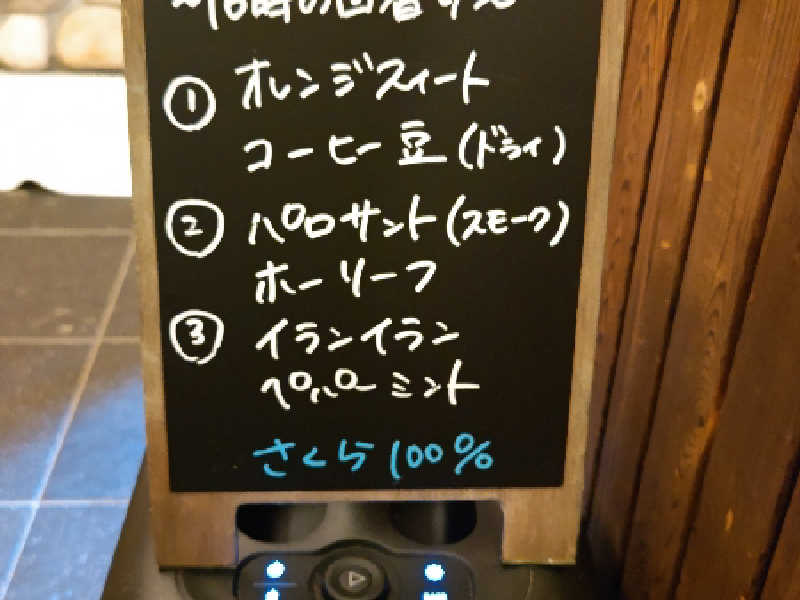 ① オレンジスイート
コーヒー豆(ドライ)
② パロサント(スモーク)
ホーリーフ
③ イランイラン
ペパーミント
さくら100%